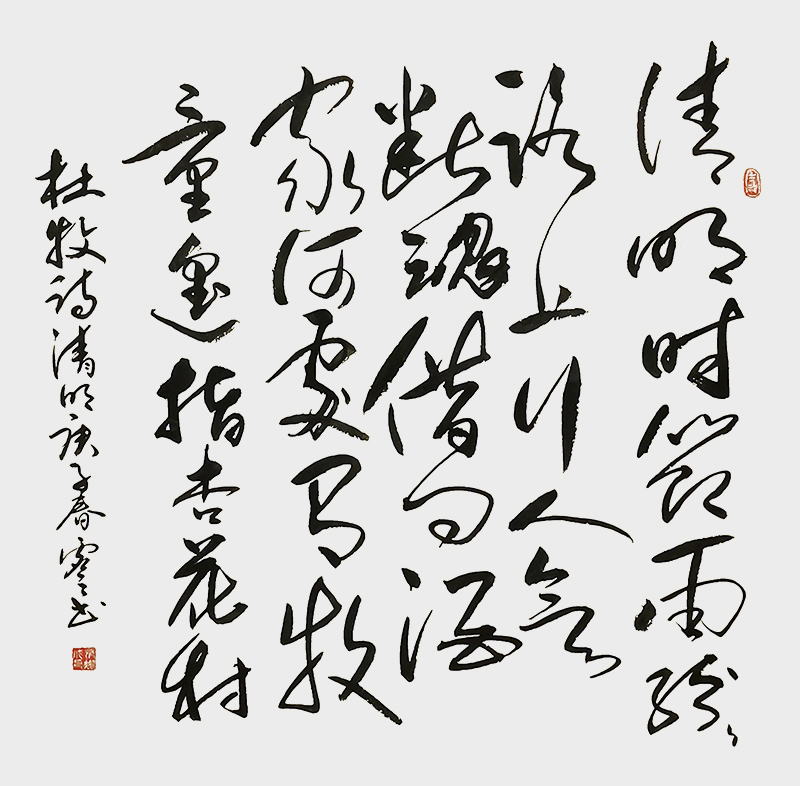 清明时節雨紛〻
路上行人欲
断魂借问酒
家何處有牧
童遥指杏花村
杜牧诗清明庚子春书